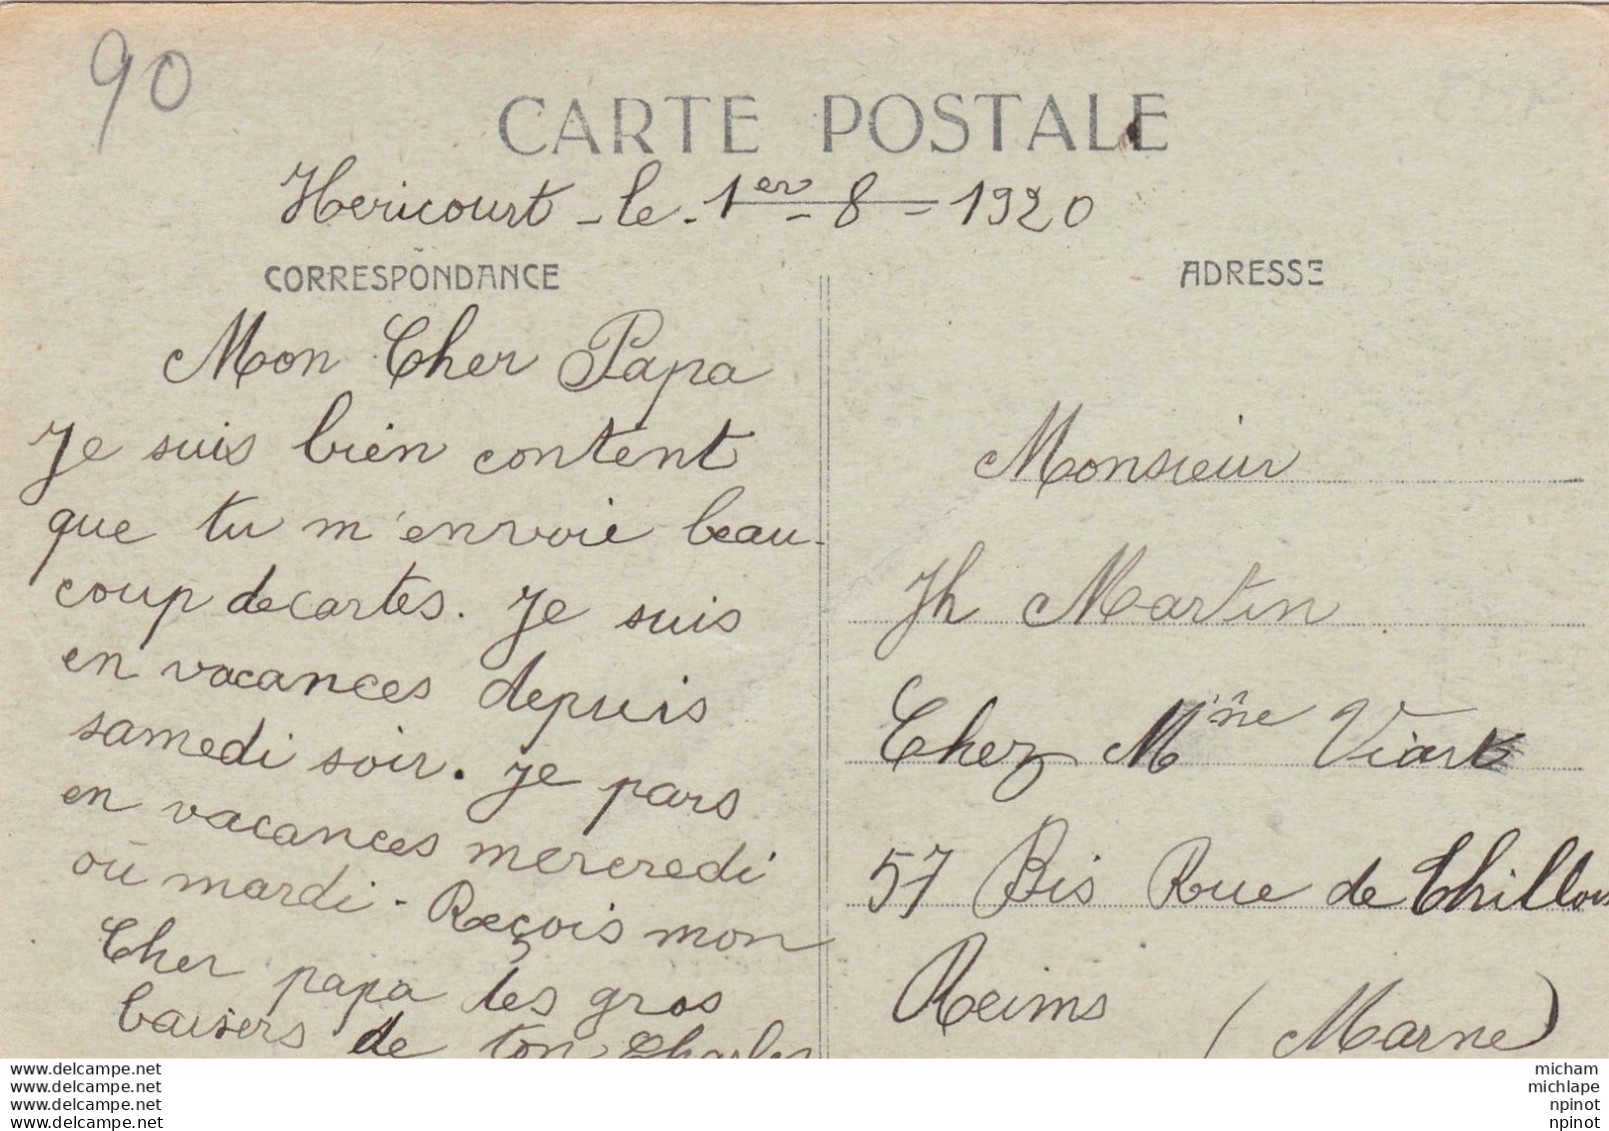 90
CARTE POSTALE
Hericourt - le - 1er - 8 - 1920
CORRESPONDANCE
Mon Cher Papa
Je suis bien content
que tu m'envoie beau-
coup de cartes. Je suis
en vacances depuis
samedi soir. Je pars
en vacances mercredi
où mardi - Reçois mon
Cher papa les gros
baisers de ton Charles
ADRESSE
Monsieur
Jh Martin
Chez Mme Viart
57 Bis Rue de Thillois
Reims
(Marne)
www.delcampe.net
www.delcampe.net
www.delcampe.net
www.delcampe.net
micham
michlape
npinot
npinot